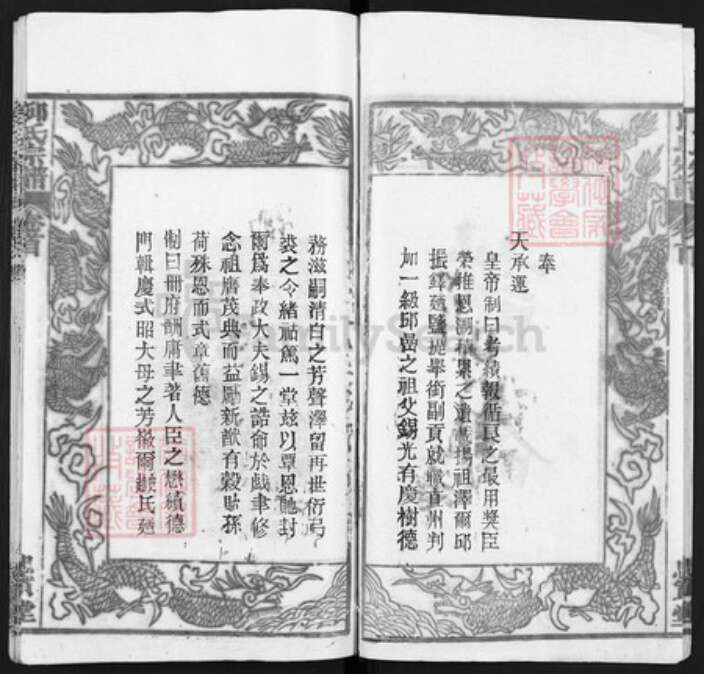 奉
天承運
皇帝制曰考績報循良之最用獎臣
榮推恩溯積累之遺載揚祖澤爾邱
振鐸廼鹽提舉銜副貢就職直州判
加一級邱嵒之祖父錫光有慶樹德
務滋嗣清白之芳聲澤留再世衍弓
裘之令緒祜篤一堂茲以覃恩馳封
爾為奉政大夫錫之誥命於戲聿修
念祖膺茂典而益勵新猷有穀貽孫
荷殊恩而式章舊德
制曰冊府酬庸聿著人臣之懋績德
門輯慶式昭大母之芳徽爾 氏廼
邱氏宗譜
卷首
FamilySearch